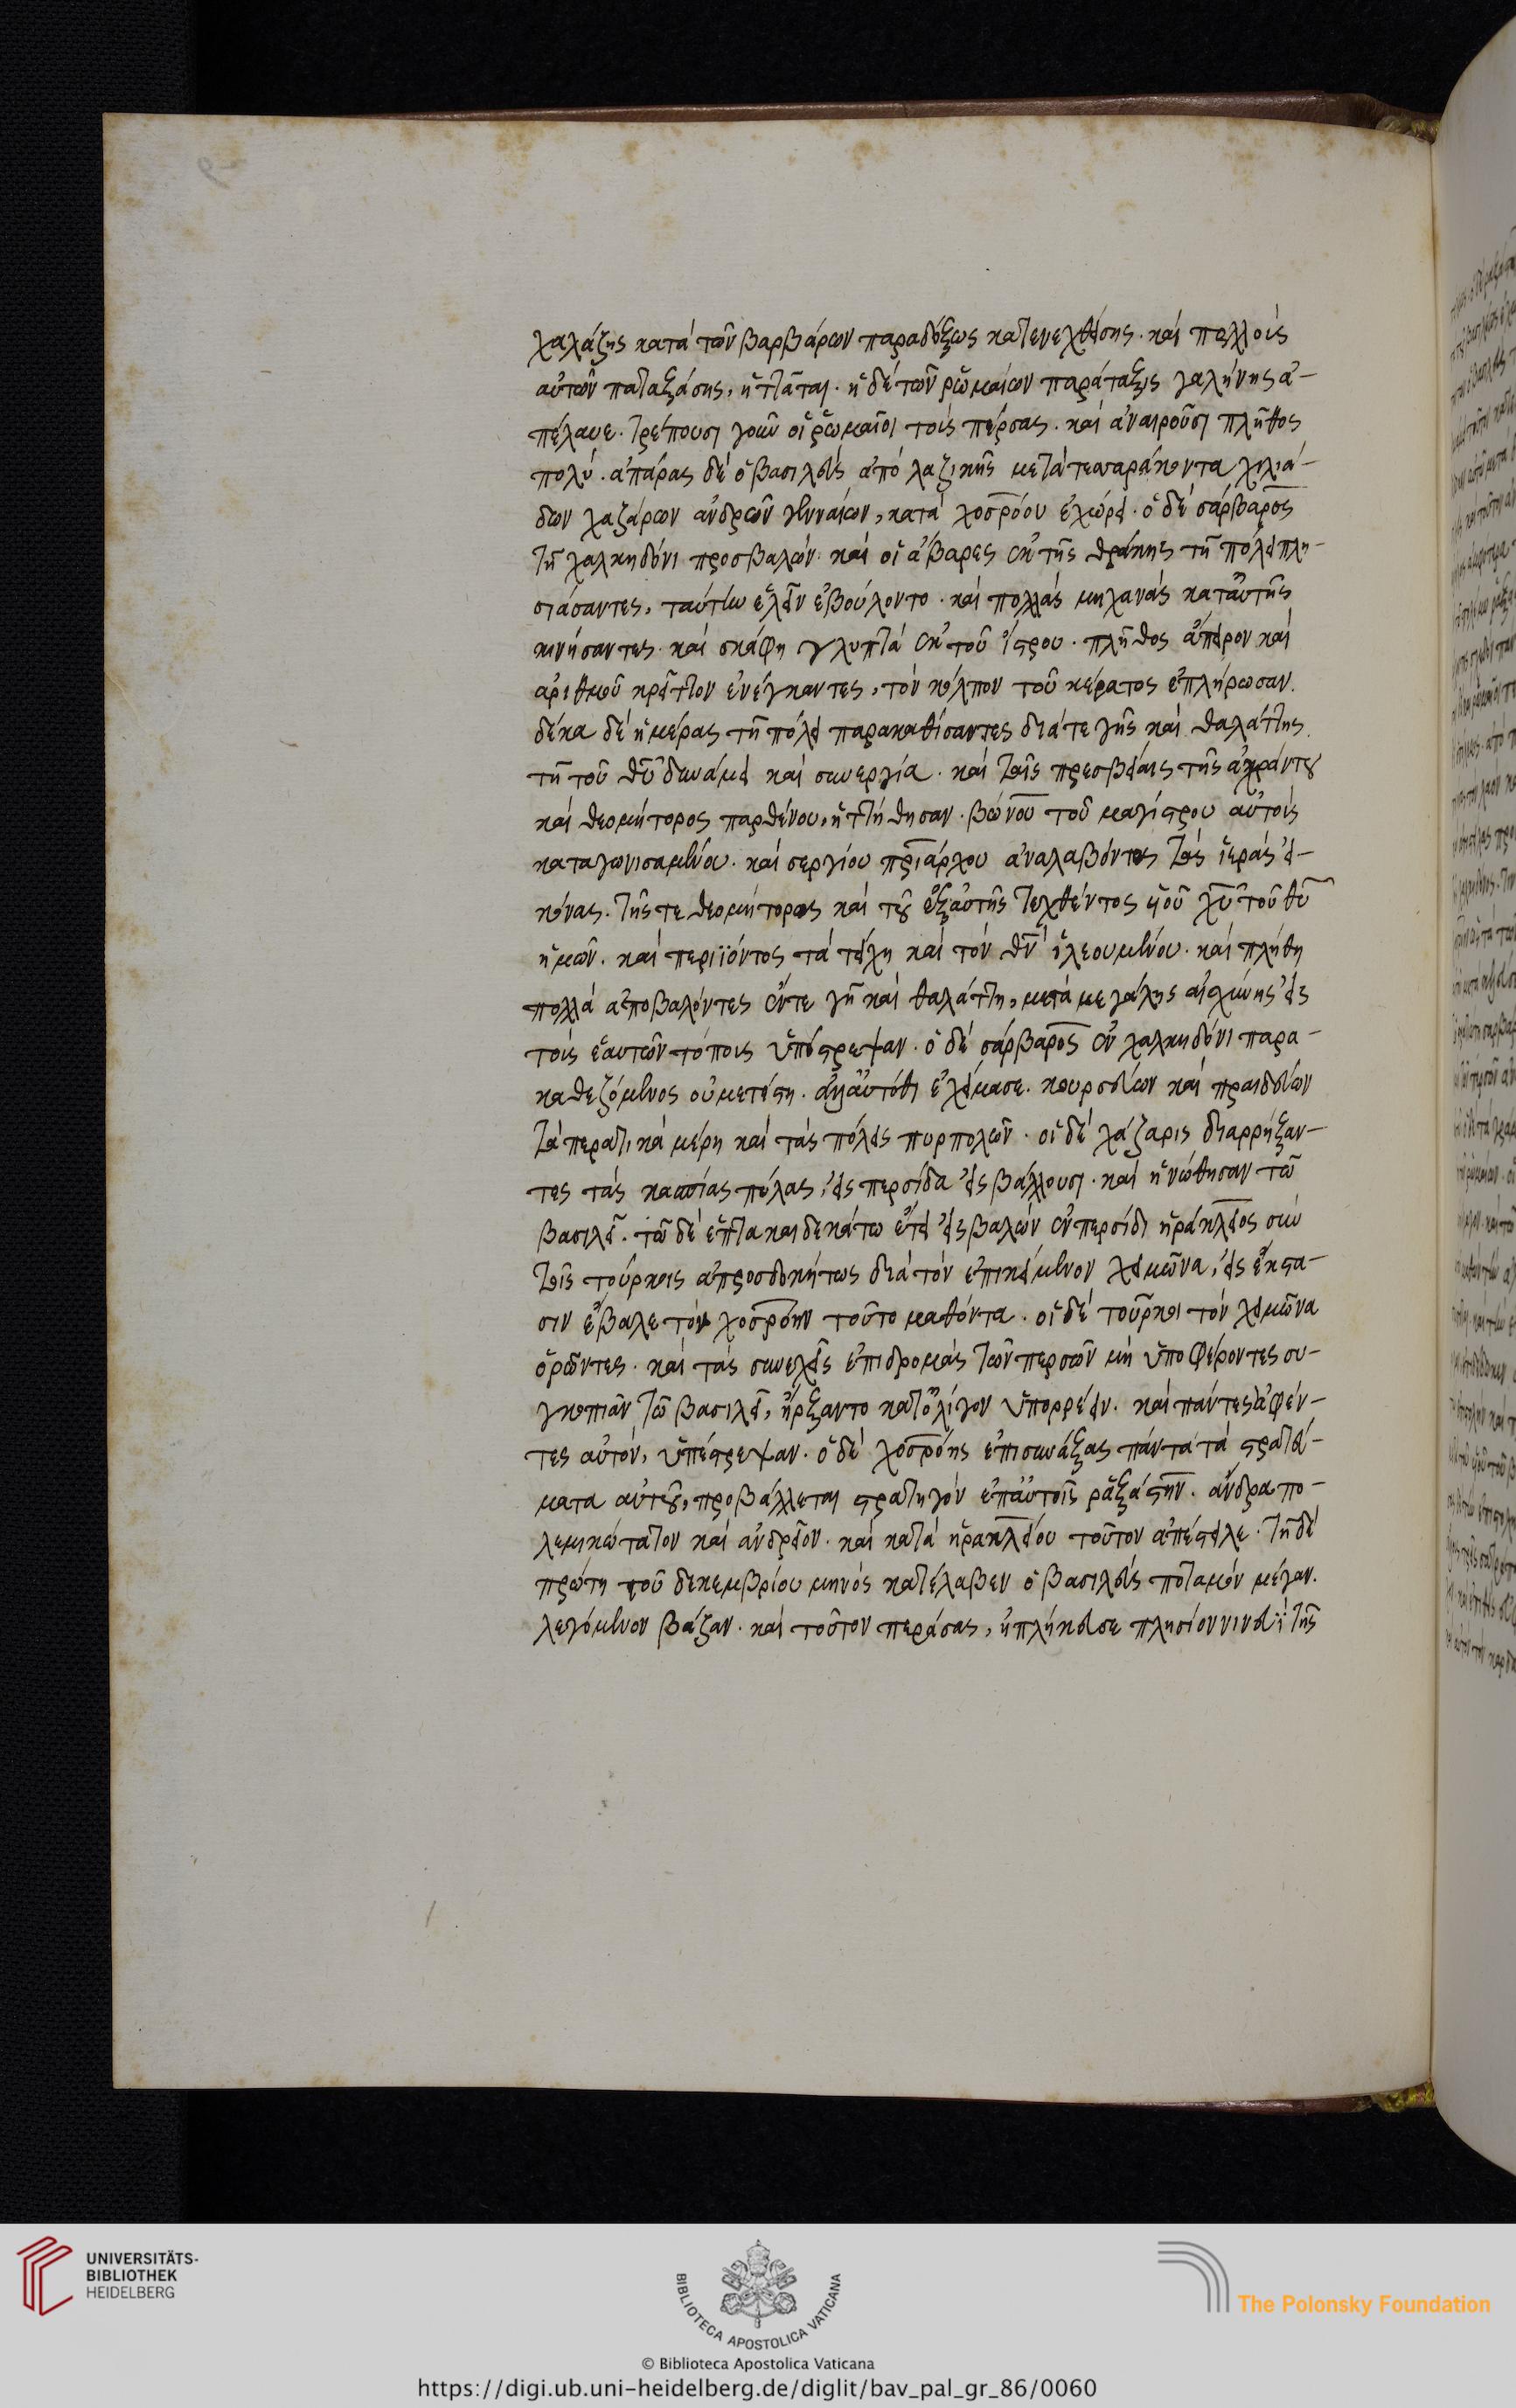 χαλάζης κατὰ τῶν βαρβάρων παραδόξως κατενεχθείσης. καὶ πολλοὺς
αὐτῶν παταξάσης, ἡττᾶται. ἡ δὲ τῶν ῥωμαίων παράταξις γαλήνης ἀ-
πέλαυε. τρέπουσι γοῦν οἱ ῥωμαῖοι τοὺς πέρσας. καὶ ἀναιροῦσι πλῆθος
πολύ. ἀπάρας δὲ ὁ βασιλεὺς ἀπὸ λαζικῆς μετὰ τεσσαράκοντα χιλιά-
δων χαζάρων ἀνδρῶν γενναίων, κατὰ χοσρόου ἐχώρει. ὁ δὲ σάρβαρος
τῇ χαλκηδόνι προσβαλών. καὶ οἱ ἄβαρες ἐκ τῆς θράκης τῇ πόλει πλη-
σιάσαντες, ταύτην ἑλεῖν ἐβούλοντο. καὶ πολλὰς μηχανὰς κατ' αὐτῆς
κινήσαντες. καὶ σκάφη γλυπτὰ ἐκ τοῦ ἴστρου. πλῆθος ἄπειρον καὶ
ἀριθμοῦ κρεῖττον ἐνέγκαντες, τὸν κόλπον τοῦ κέρατος ἐπλήρωσαν.
δέκα δὲ ἡμέρας τῇ πόλει παρακαθίσαντες διά τε γῆς καὶ θαλάττης.
τῇ τοῦ θυ δυνάμει καὶ συνεργία. καὶ ταῖς πρεσβείαις τῆς ἀχράντου
καὶ θεομήτορος παρθένου, ἡττήθησαν. βώνου τοῦ μαγίστρου αὐτοὺς
καταγωνισαμένου. καὶ σεργίου πριάρχου ἀναλαβόντος τὰς ἱερὰς εἰ-
κόνας. τῆς τε θεομήτορος καὶ τοῦ ἐξ αὐτῆς τεχθέντος ιου χυ τοῦ θυ
ἡμῶν. καὶ περιϊόντος τὰ τείχη καὶ τὸν θν ἱλεουμένου. καὶ πλήθη
πολλὰ ἀποβαλόντες ἔν τε γῇ καὶ θαλάττῃ, μετὰ μεγάλης αἰσχύνης εἰς
τοὺς ἑαυτῶν τόπους ὑπέστρεψαν. ὁ δὲ σάρβαρος ἐν χαλκηδόνι παρα-
καθεζόμενος οὐ μετέστη. ἀλλ' αὐτόθι ἐχείμασε. κουρσεύων καὶ πραιδεύων
τὰ περατικὰ μέρη καὶ τὰς πόλεις πυρπολῶν. οἱ δὲ χάζαρις διαρρήξαν-
τες τὰς κασπίας πύλας, εἰς περσίδα εἰσβάλλουσι. καὶ ἡνώθησαν τῶ
βασιλεῖ. τῶ δὲ ἑπτακαιδεκάτω ἔτει εἰσβαλὼν ἐν περσίδι ἡράκλειος σὺν
τοῖς τούρκοις ἀπροσδοκήτως διὰ τὸν ἐπικείμενον χειμῶνα, εἰς ἔκστα-
σιν ἔβαλε τὸν χοσρόην τοῦτο μαθόντα. οἱ δὲ τοῦρκοι τὸν χειμῶνα
ὁρῶντες. καὶ τὰς συνεχεῖς ἐπιδρομὰς τῶν περσῶν μὴ ὑποφέροντες συ-
γκοπιᾶν τῶ βασιλεῖ, ἤρξαντο κατ' ὀλίγον ὑπορρέειν. καὶ πάντες ἀφέν-
τες αὐτόν, ὑπέστρεψαν. ὁ δὲ χοσρόης ἐπισυνάξας πάντα τὰ στρατεύ-
ματα αὐτοῦ, προβάλλεται στρατηγὸν ἐπ' αὐτοῖς ῥαξάστην. ἄνδρα πο-
λεμικώτατον καὶ ἀνδρεῖον. καὶ κατὰ ἡρακλείου τοῦτον ἀπέστειλε. τῇ δὲ
πρώτη τοῦ δεκεμβρίου μηνὸς κατέλαβεν ὁ βασιλεὺς ποταμὸν μέγαν.
λεγόμενον βάζαν. καὶ τοῦτον περάσας, ἠπλήκευσε πλησίον νινευῒ τῆς
UNIVERSITÄTS-
BIBLIOTHEK
HEIDELBERG
BIBLIOTECA APOSTOLICA VATICANA
The Polonsky Foundation
© Biblioteca Apostolica Vaticana
https://digi.ub.uni-heidelberg.de/diglit/bav_pal_gr_86/0060